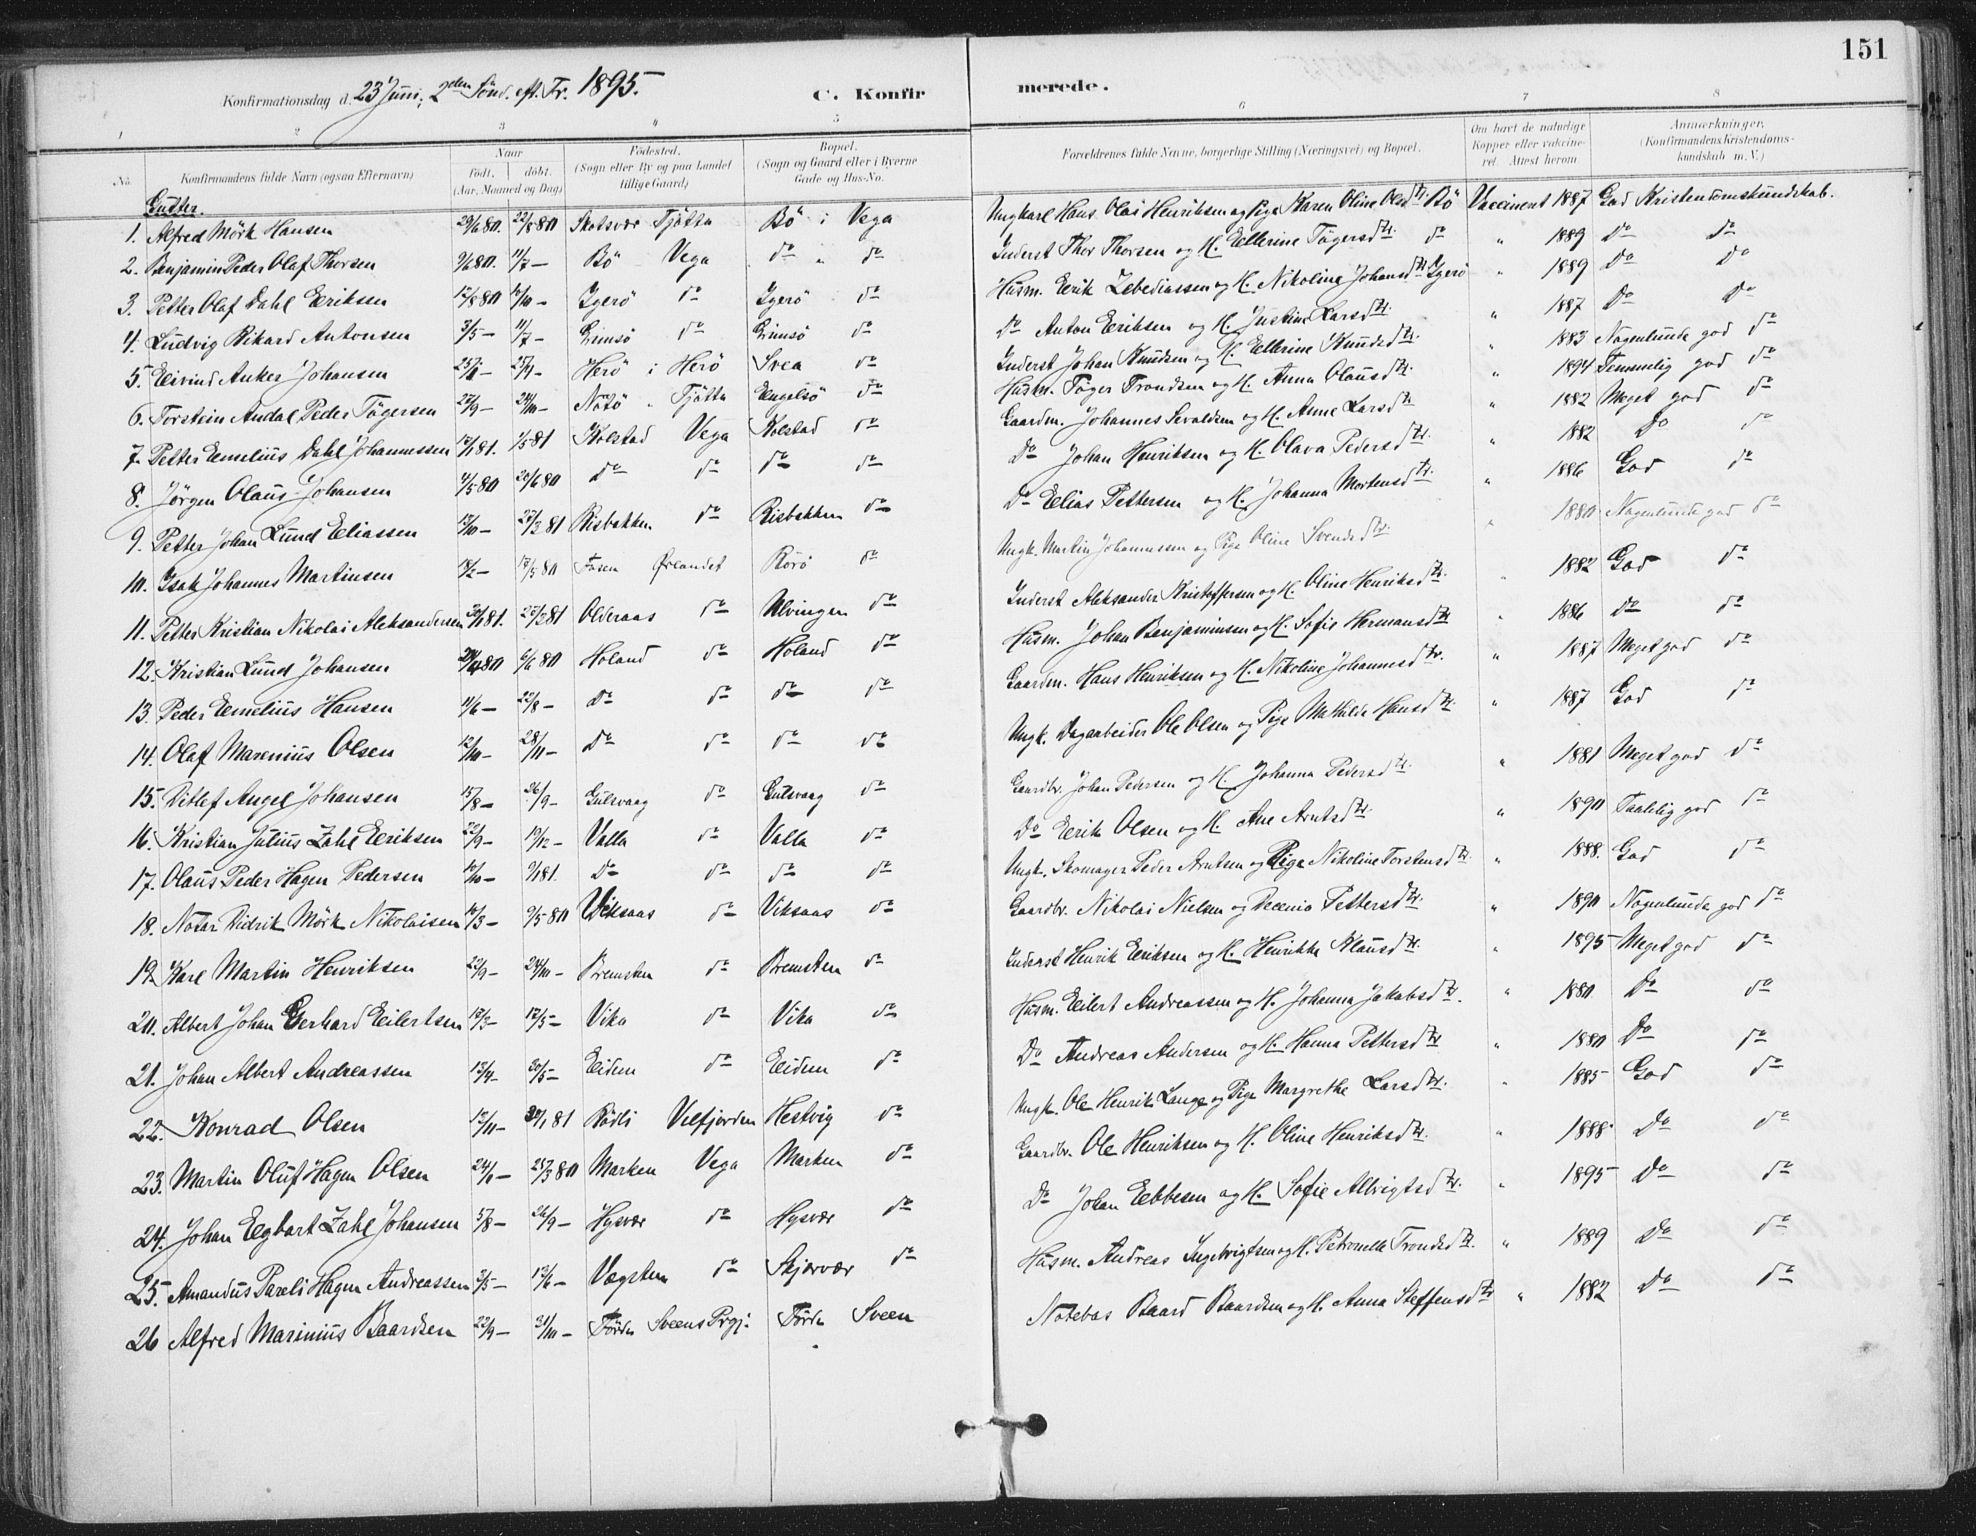 151
Konfirmationsdag d. 23 Juni; 2den Sönd. eft. Tr. 1895. C. Konfir merede.
1 2 3 4 5 6 7 8
No. Konfirmandens fulde Navn (ogsaa Efternavn) Naar Födt. döbt. (Aar, Maaned og Dag) Födested. (Sogn eller By og paa Landet tillige Gaard) Bopæl. (Sogn og Gaard eller i Byerne Gade og Hus-No. Forældrenes fulde Navne, borgerlige Stilling (Næringsvei) og Bopæl. Om havt de naturlige Kopper eller vaccineret. Attest herom. Anmærkninger. (Konfirmandens Kristendomskundskab m. V.)
Gutter.
1. Alfred Mörk Hansen 29/6 80. 22/8 80 Skotsvær Tjötta Bö i Vega Ungkarl Hans Olai Henriksen og Pige Karen Oline Olsdtr. Bö Vaccineret 1887 God Kristendomskundskab.
2. Benjamin Peder Olaf Thorsen 9/6 80. 11/7 – Bö Vega do " do Inderst Thor Thorsen og H. Ellerine Tögersdtr. do " 1889 Do Do
3. Petter Olaf Dahl Eriksen 17/8 80 10/10 – Igerö do Igerö do Husm. Erik Zebediassen og H. Nikoline Johansdtr Igerö " 1889 Do Do
4. Ludvig Rikard Antonsen 3/5 – 11/7 – Grimsö do Grimsö do Do Anton Eriksen og H. Justine Larsdtr. " 1887 Do Do
5. Eivind Anker Johansen Herö i Herö Svea do Inderst Johan Knudsen og H. Ellerine Knudsdtr. " 1883 Nogenlunde god do
6. Torstein Andal Peder Tögersen 27/9 – 24/10 – Nötö " Tjötta Engelsö do Husm. Töger Trondsen og H. Anna Olausdtr. " 1894 Temmelig god do
7. Petter Emelius Dahl Johannessen 12/1 81. 1/5 81 Kolstad Vega Kolstad do Gaardm. Johannes Sevaldsen og H. Anne Larsdtr " 1882 Meget god do
8. Jörgen Olaus Johansen 9/5 80 20/6 80 Do do do do Do Johan Henriksen og H. Olava Pedersdtr. " 1882 Do do
9. Petter Johan Lund Eliassen 17/10 – 27/3 81 Risbakken do Risbakken do Do Elias Pettersen og H. Johanna Mortensdtr. " 1886 God do
10. Isak Johannes Martinsen 18/2 – 17/5 80 Fosen Ørlandet Rörö do Ungk. Martin Johannessen og Pige Oline Svendsdtr. " 1880 Nogenlunde god do
11. Petter Kristian Nikolai Aleksandersen 30/1 81. 27/3 81 Olderaas do Ulvingen do Inderst Aleksander Kristoffersen og H. Oline Henriksdtr. " 1882 God do
12. Kristian Lund Johansen 24/4 80 6/6 80 Holand do Holand do Husm. Johan Benjaminsen og H. Sofie Hermansdtr " 1886 do do
13. Peder Emelius Hansen 11/6 – 22/8 – Do do do do Gaardm. Hans Henriksen og H. Nikoline Johannesdtr. " 1887 Meget god do
14. Olaf Marenius Olsen 12/10 – 28/11 – Do do do do Ungk. Dagarbeider Ole Olsen og Pige Mathilde Hansdtr. " 1887 God do
15. Ditlef Angel Johansen 15/8 – 26/9 – Gulsvaag do Gulsvaag do Gaardbr. Johan Pedersen og H. Johanna Pedersdtr. " 1881 Meget god do
16. Kristian Julius Zahl Eriksen 22/9 – 19/12 – Valla do Valla do Do Erik Olsen og H. Ane Arntsdtr. " 1890 Taalelig god do
17. Olaus Peder Hagen Pedersen 10/10 – 9/1 81. Do do do do Ungk. Skomager Peder Arntsen og Pige Nikoline Torstensdtr. " 1888. God do
18. Notar Didrik Mörk Nikolaisen 10/3 – 9/5 80 Viksaas do Viksaas do Gaardbr. Nikolai Nielsen og Decenia Pettersdtr. " 1890 Nogenlunde god do
19. Karl Martin Henriksen 22/9 – 24/10 – Bremsten do Bremsten do Inderst Henrik Eriksen og H. Henrikke Klausdtr. " 1895 Meget god do
20. Albert Johan Gerhard Eilertsen 12/3 – 17/5 – Vika do Vika do Husm. Eilert Andreassen og H. Johanna Jakobsdtr. " 1880. Do do
21. Johan Albert Andreassen 13/4 – 30/5 – Eidem do Eidem do Do Andreas Andersen og H. Hanna Pettersdtr " 1880 Do do
22. Konrad Olsen 12/11 – 30/1 81 Rödli Velfjorden Hestvig do Ungk. Ole Henrik Lange og Pige Margrethe Larsdtr. " 1885 God do
23. Martin Oluf Hagen Olsen 24/1 – 25/3 80 Marken Vega Marken do Gaardbr. Ole Henriksen og H. Oline Henriksdtr. " 1888 Do do
24. Johan Egbart Zahl Johansen 5/8 – 26/9 – Hysvær do Hysvær do Do Johan Ebbesen og H. Sofie Albrigtsdtr. " 1895 Do do
25. Amandus Pareli Hagen Andreassen 2/5 – 13/6 – Vægsten do Skjærvær do Husm. Andreas Ingebrigtsen og H. Petronelle Trondsdtr. " 1889 Do do
26 Alfred Marinius Baardsen 22/9 – 31/10 – Förde Sveens Prgj. Förde Sveen Notebas Baard Baardsen og H. Anna Steffensdtr " 1882 Do do